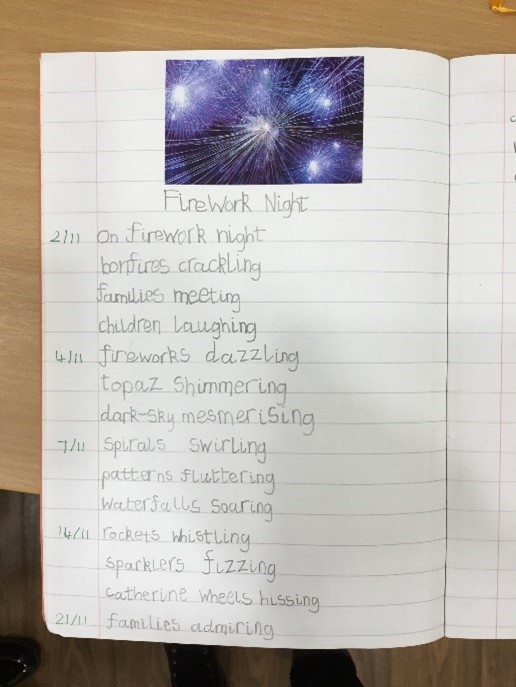 Firework Night
2/11 On firework night
bonfires crackling
families meeting
children laughing
4/11 fireworks dazzling
topaz shimmering
dark-sky mesmerising
7/11 spirals swirling
patterns fluttering
waterfalls soaring
14/11 rockets whistling
sparklers fizzing
catherine wheels hissing
21/11 families admiring